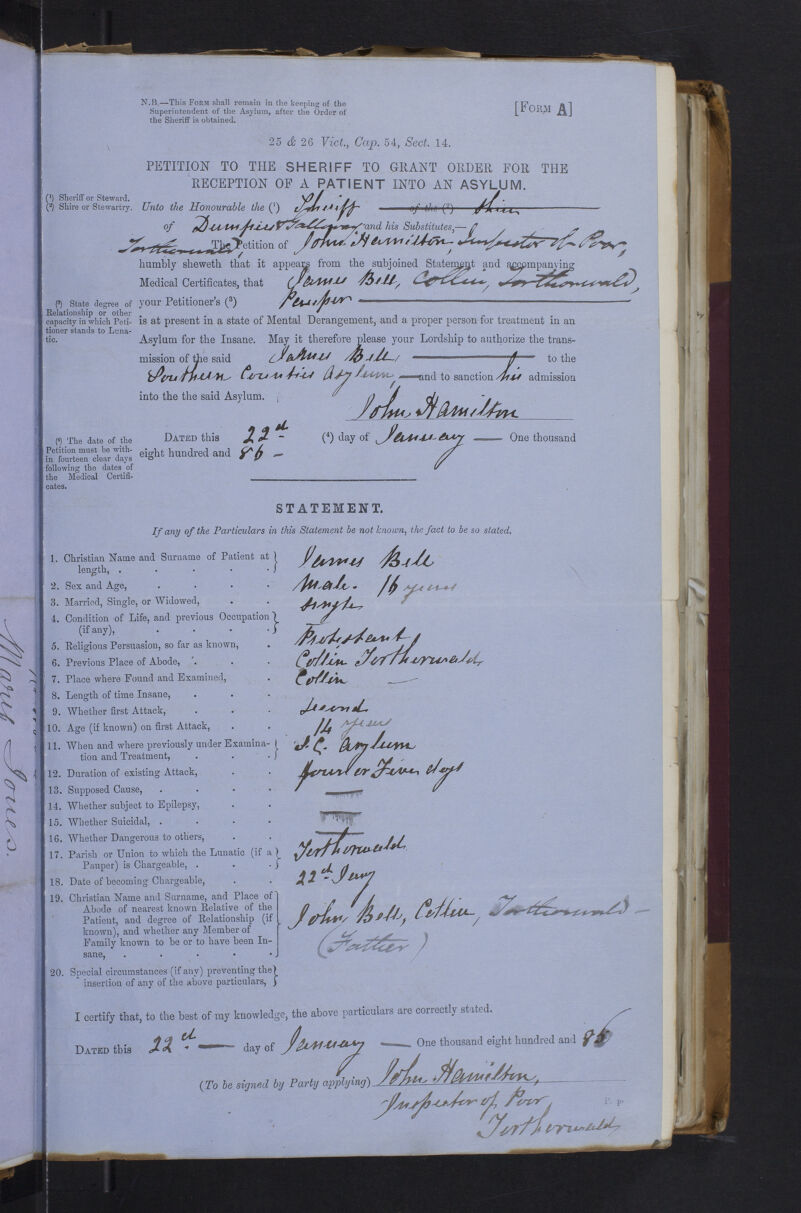 N.B.—This FORM shall remain in the keeping of the
Superintendent of the Asylum, after the Order of
the Sheriff is obtained.
[FORM A]
25 & 26 Vict., Cap. 54, Sect. 14.
PETITION TO THE SHERIFF TO GRANT ORDER FOR THE
RECEPTION OF A PATIENT INTO AN ASYLUM.
(1) Sheriff or Steward.
(2) Shire or Stewartry.
Unto the Honourable the (1) Sheriff of the (2) Shire
of Dumfries & Galloway and his Substitutes,—
The Petition of John Hamilton, Inspector of Poor,
Torthorwald,
humbly sheweth that it appears from the subjoined Statement and accompanying
Medical Certificates, that James Bell, Collin, Torthorwald,
(3) State degree of
Relationship or other
capacity in which Peti-
tioner stands to Luna-
tic.
your Petitioner's (3) Pauper
is at present in a state of Mental Derangement, and a proper person for treatment in an
Asylum for the Insane. May it therefore please your Lordship to authorize the trans-
mission of the said James Bell, to the
Southern Counties Asylum, and to sanction his admission
into the the said Asylum.
John Hamilton
(4) The date of the
Petition must be with-
in fourteen clear days
following the dates of
the Medical Certifi-
cates.
DATED this 22d (4) day of January One thousand
eight hundred and 86
STATEMENT.
If any of the Particulars in this Statement be not known, the fact to be so stated.
1. Christian Name and Surname of Patient at
length, . . . . . James Bell
2. Sex and Age, . . . . Male. 16 years
3. Married, Single, or Widowed, . . Single
4. Condition of Life, and previous Occupation
(if any), . . . .
5. Religious Persuasion, so far as known, . Protestant
6. Previous Place of Abode, . . . Collin Torthorwald
7. Place where Found and Examined, . Collin
8. Length of time Insane, . . .
9. Whether first Attack, . . . Second
10. Age (if known) on first Attack, . . 14 years
11. When and where previously under Examina-
tion and Treatment, . . . S.C. Asylum
12. Duration of existing Attack, . . four or Five days
13. Supposed Cause, . . . .
14. Whether subject to Epilepsy, . .
15. Whether Suicidal, . . . .
16. Whether Dangerous to others, . .
17. Parish or Union to which the Lunatic (if a
Pauper) is Chargeable, . . . Torthorwald
18. Date of becoming Chargeable, . . 22d Jany
19. Christian Name and Surname, and Place of
Abode of nearest known Relative of the
Patient, and degree of Relationship (if
known), and whether any Member of
Family known to be or to have been In-
sane, . . . . .
John Bell, Collin, Torthorwald
(Father)
20. Special circumstances (if any) preventing the
insertion of any of the above particulars,
I certify that, to the best of my knowledge, the above particulars are correctly stated.
DATED this 22d day of January One thousand eight hundred and 86
(To be signed by Party applying) John Hamilton,
Inspector of Poor
P. P
Torthorwald
Jones.